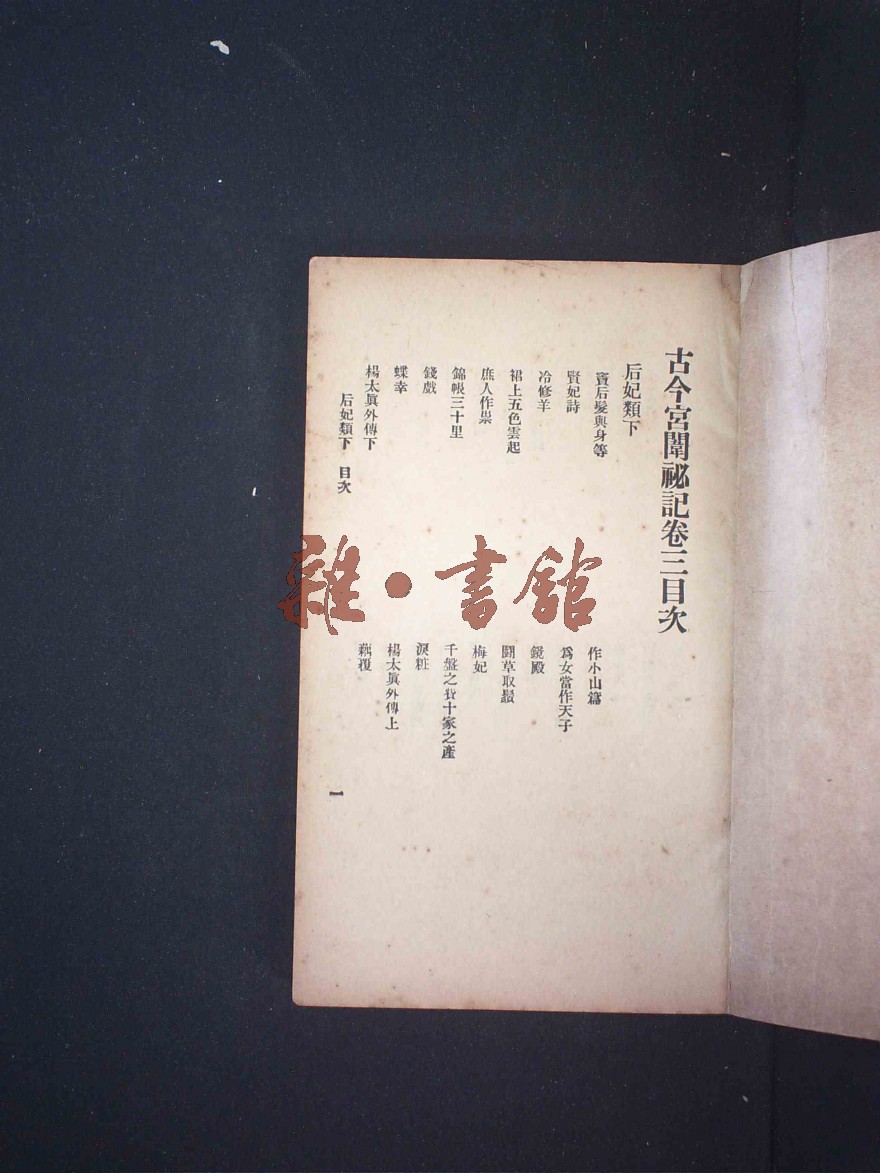 古今宮闈祕記卷三目次
后妃類下
竇后髮與身等
作小山篇
賢妃詩
爲女當作天子
冷修羊
鏡殿
裙上五色雲起
鬬草取鬚
庶人作祟
梅妃
錦帳三十里
千盤之費十家之產
錢戲
淚粧
蝶幸
楊太眞外傳上
楊太眞外傳下
藕覆
后妃類下 目次
一
雜·書館